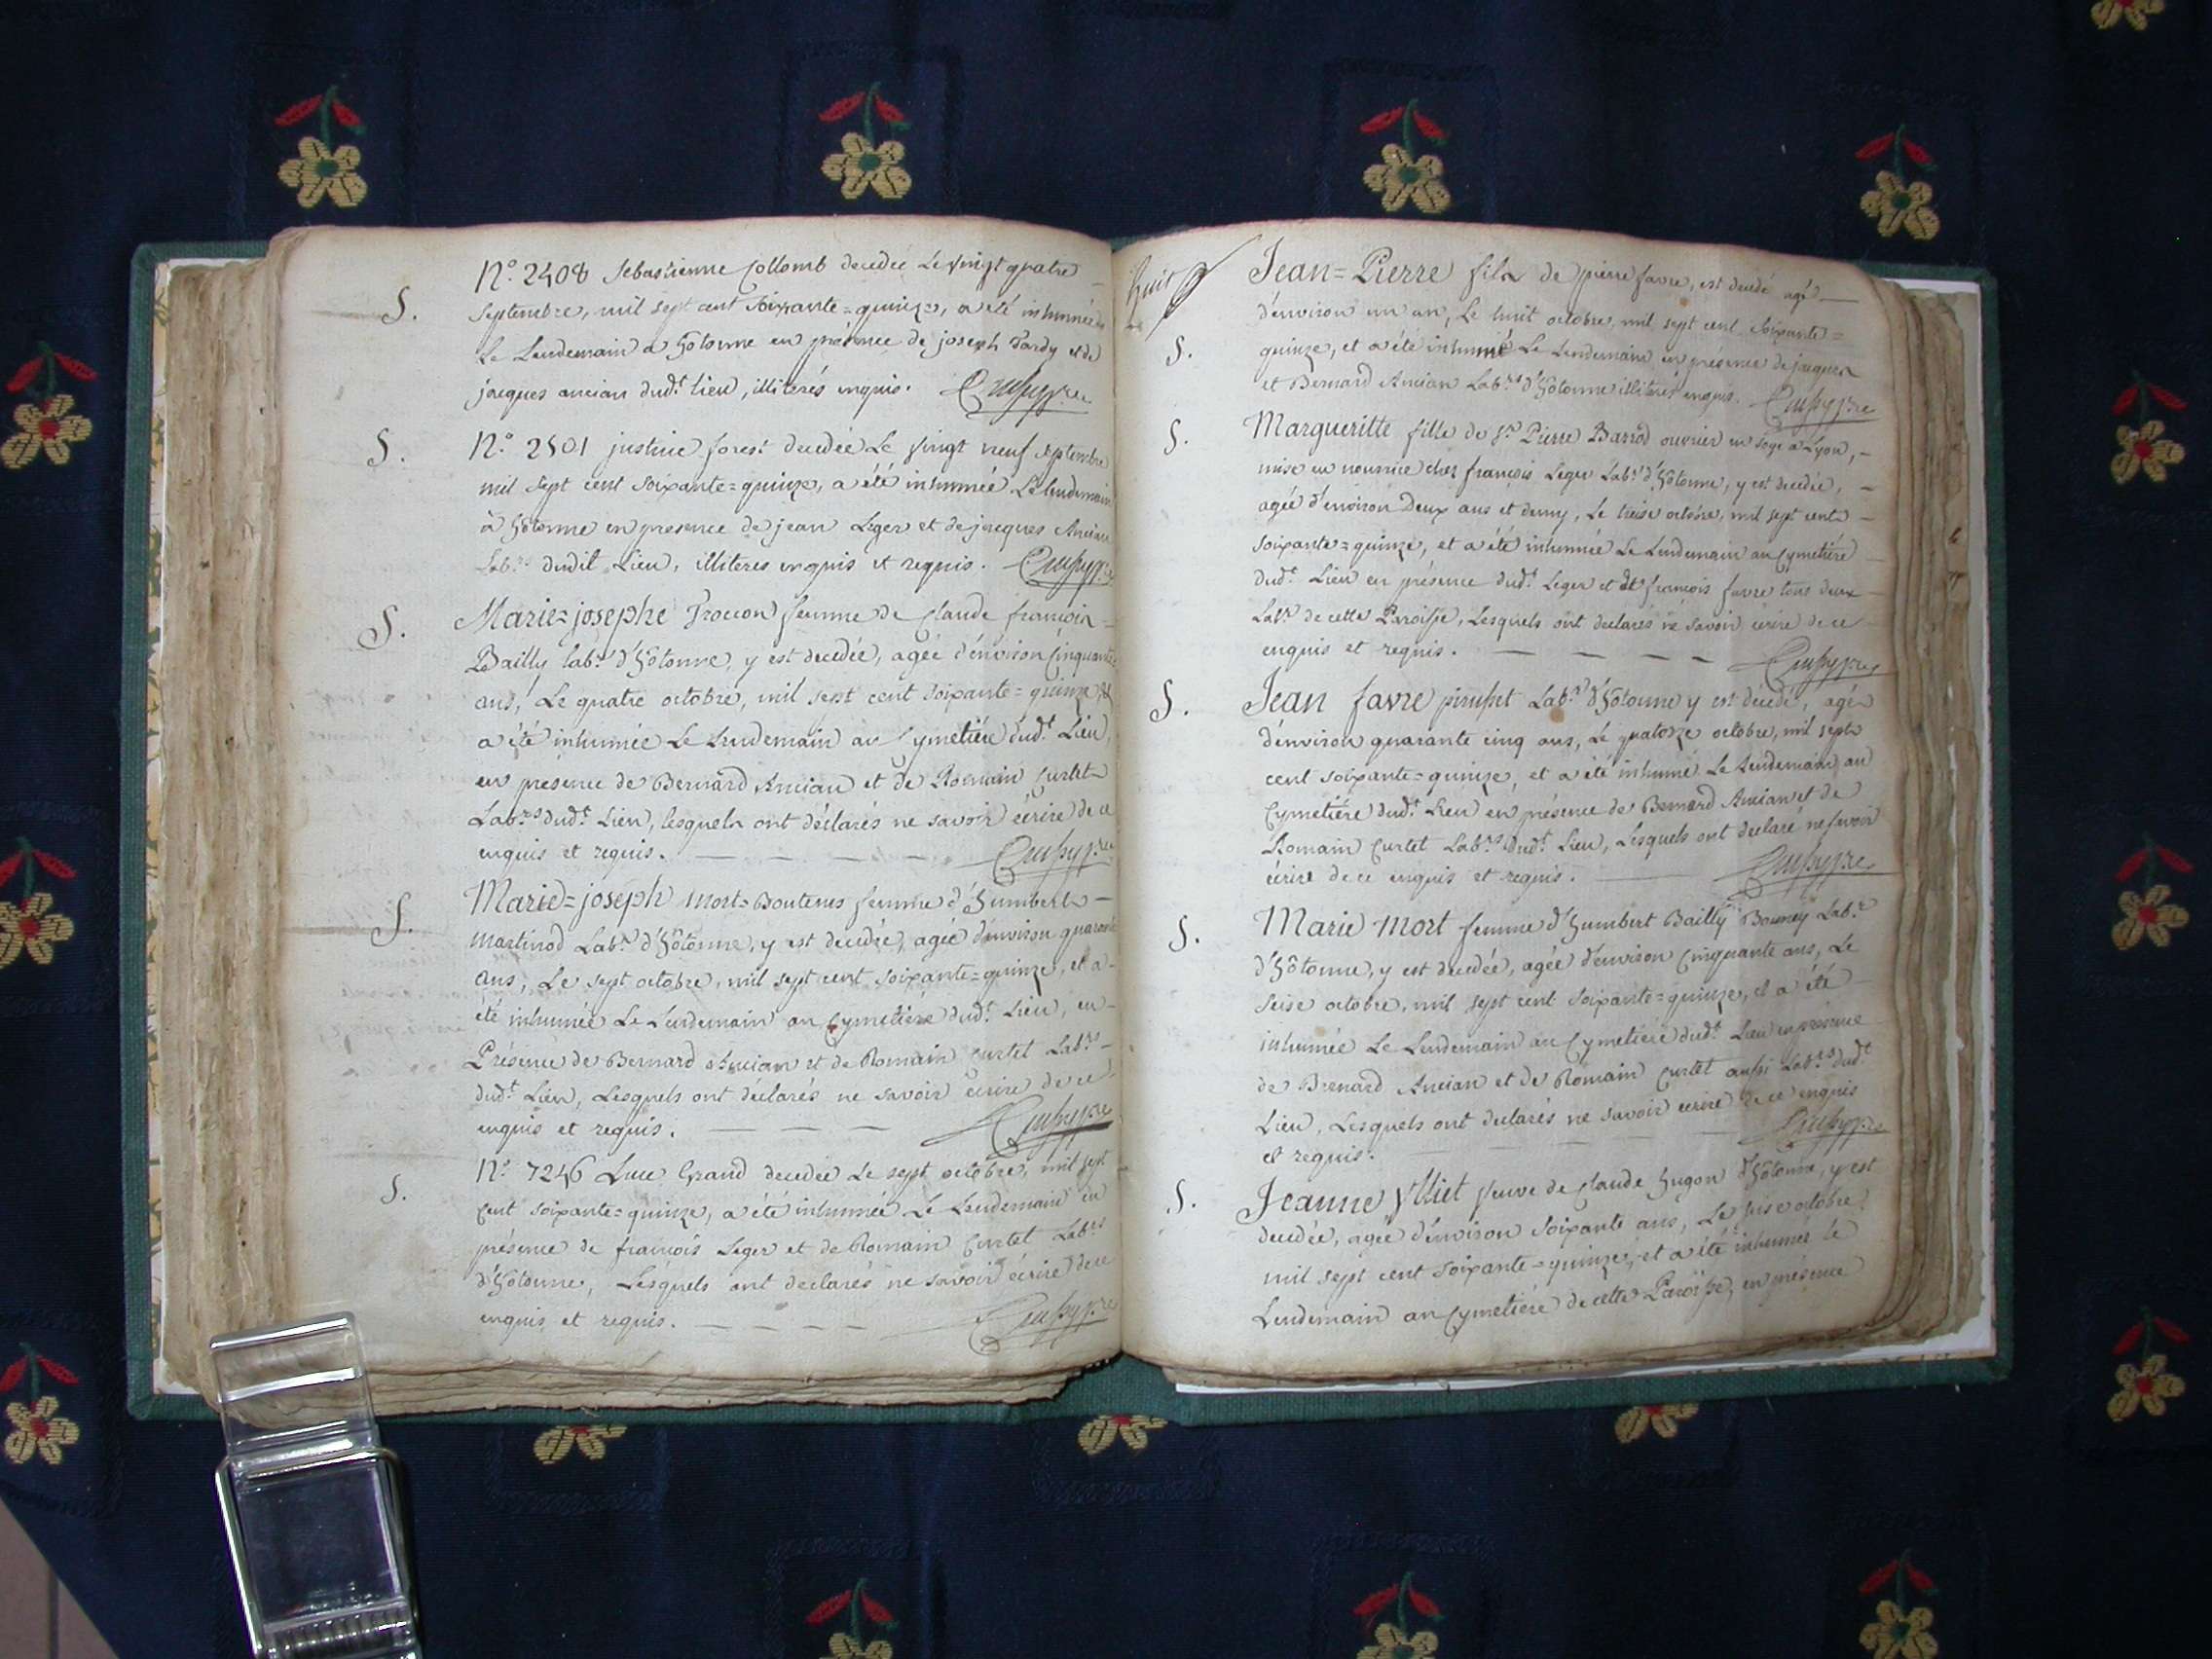 N.o 2408 Sebastienne Collomb decedée Le vingt quatre
S.
septembre, mil sept cent soixante=quinze, a été inhumée
Le Lendemain a hôtonne en présence de joseph Tardy et de
jacques ancian dud.t lieu, illiterés enquis.
S.
N.o 2501 justine forest decedée Le vingt neuf septembre
mil sept cent soixante=quinze, a été inhumée Le lendemain
à hôtonne en presence de jean Leger et de jacques Ancian
Lab.rs dudit Lieu, illiteres enquis et requis.
S.
Marie=josephe Troccon femme de Claude françois
Bailly lab.r d'hôtonne, y est decedée, agée d'environ cinquante
ans, Le quatre octobre, mil sept cent soixante=quinze, et
a été inhumée Le Lendemain au Cymetiére dud.t Lieu,
en présence de Bernard Ancian et de Romain Curtet
Lab.rs dud.t Lieu, lesquels ont déclarés ne savoir écrire de ce
enquis et requis.
S.
Marie=joseph Mort=Boutenus femme d'humbert
martinod Lab.r d'hôtonne, y est decedée, agée d'environ quarante
ans, Le sept octobre, mil sept cent soixante=quinze, et a
été inhumée Le Lendemain au Cymetiére dud.t Lieu, en
Présence de Bernard Ancian et de Romain Curtet Lab.rs
dud.t Lieu, Lesquels ont déclarés ne savoir écrire de ce
enquis et requis.
S.
N.o 7246 Luce Grand decedée Le sept octobre, mil sept
cent soixante=quinze, a été inhumée Le Lendemain en
présence de françois Leger et de Romain Curtet Lab.rs
d'hôtonne, Lesquels ont declarés ne savoir écrire de ce
enquis et requis.
huit
Jean=Pierre fils de pierre favre, est decedé agé
d'environ un an, Le huit octobre, mil sept cent soixante=
S.
quinze, et a été inhumé Le Lendemain en présence de jacques
et Bernard Ancian Lab.rs d'hôtonne illiterés enquis.
S.
Margueritte fille de s.r Pierre Barrod ouvrier en soye a Lyon,
mise en nourrice chez françois Leger Lab.r d'hôtonne, y est decedée,
agée d'environ Deux ans et demy, Le treise octobre, mil sept cent
soixante=quinze, et a été inhumée Le Lendemain au Cymetiére
dud.t Lieu en présence dud.t Leger et de françois favre tous deux
Lab.rs de cette Paroisse, Lesquels ont declarés ne savoir écrire de ce
enquis et requis.
S.
Jean favre Lab.r d'hôtonne y est decedé, agé
d'environ quarante cinq ans, Le quatorze octobre, mil sept
cent soixante=quinze, et a été inhumé Le Lendemain au
Cymetiére dud.t Lieu en présence de Bernard Ancian et de
Romain Curtet Lab.rs dud.t Lieu, Lesquels ont declaré ne savoir
écrire de ce enquis et requis.
S.
Marie Mort femme d'humbert Bailly Lab.r
d'hôtonne, y est decedée, agée d'environ Cinquante ans, Le
seise octobre, mil sept cent soixante=quinze, et a été
inhumée Le Lendemain au Cymetiére dud.t Lieu en presence
de Brenard Ancian et de Romain Curtet aussi Lab.rs dud.t
Lieu, Lesquels ont declarés ne savoir ecrire de ce enquis
et requis.
S.
Jeanne Veuve de Claude hugon d'hôtonne, y est
decedée, agée d'environ soixante ans, Le seise octobre,
mil sept cent soixante=quinze, et a été inhumée le
Lendemain au Cymetiére de cette Paroisse, en présence